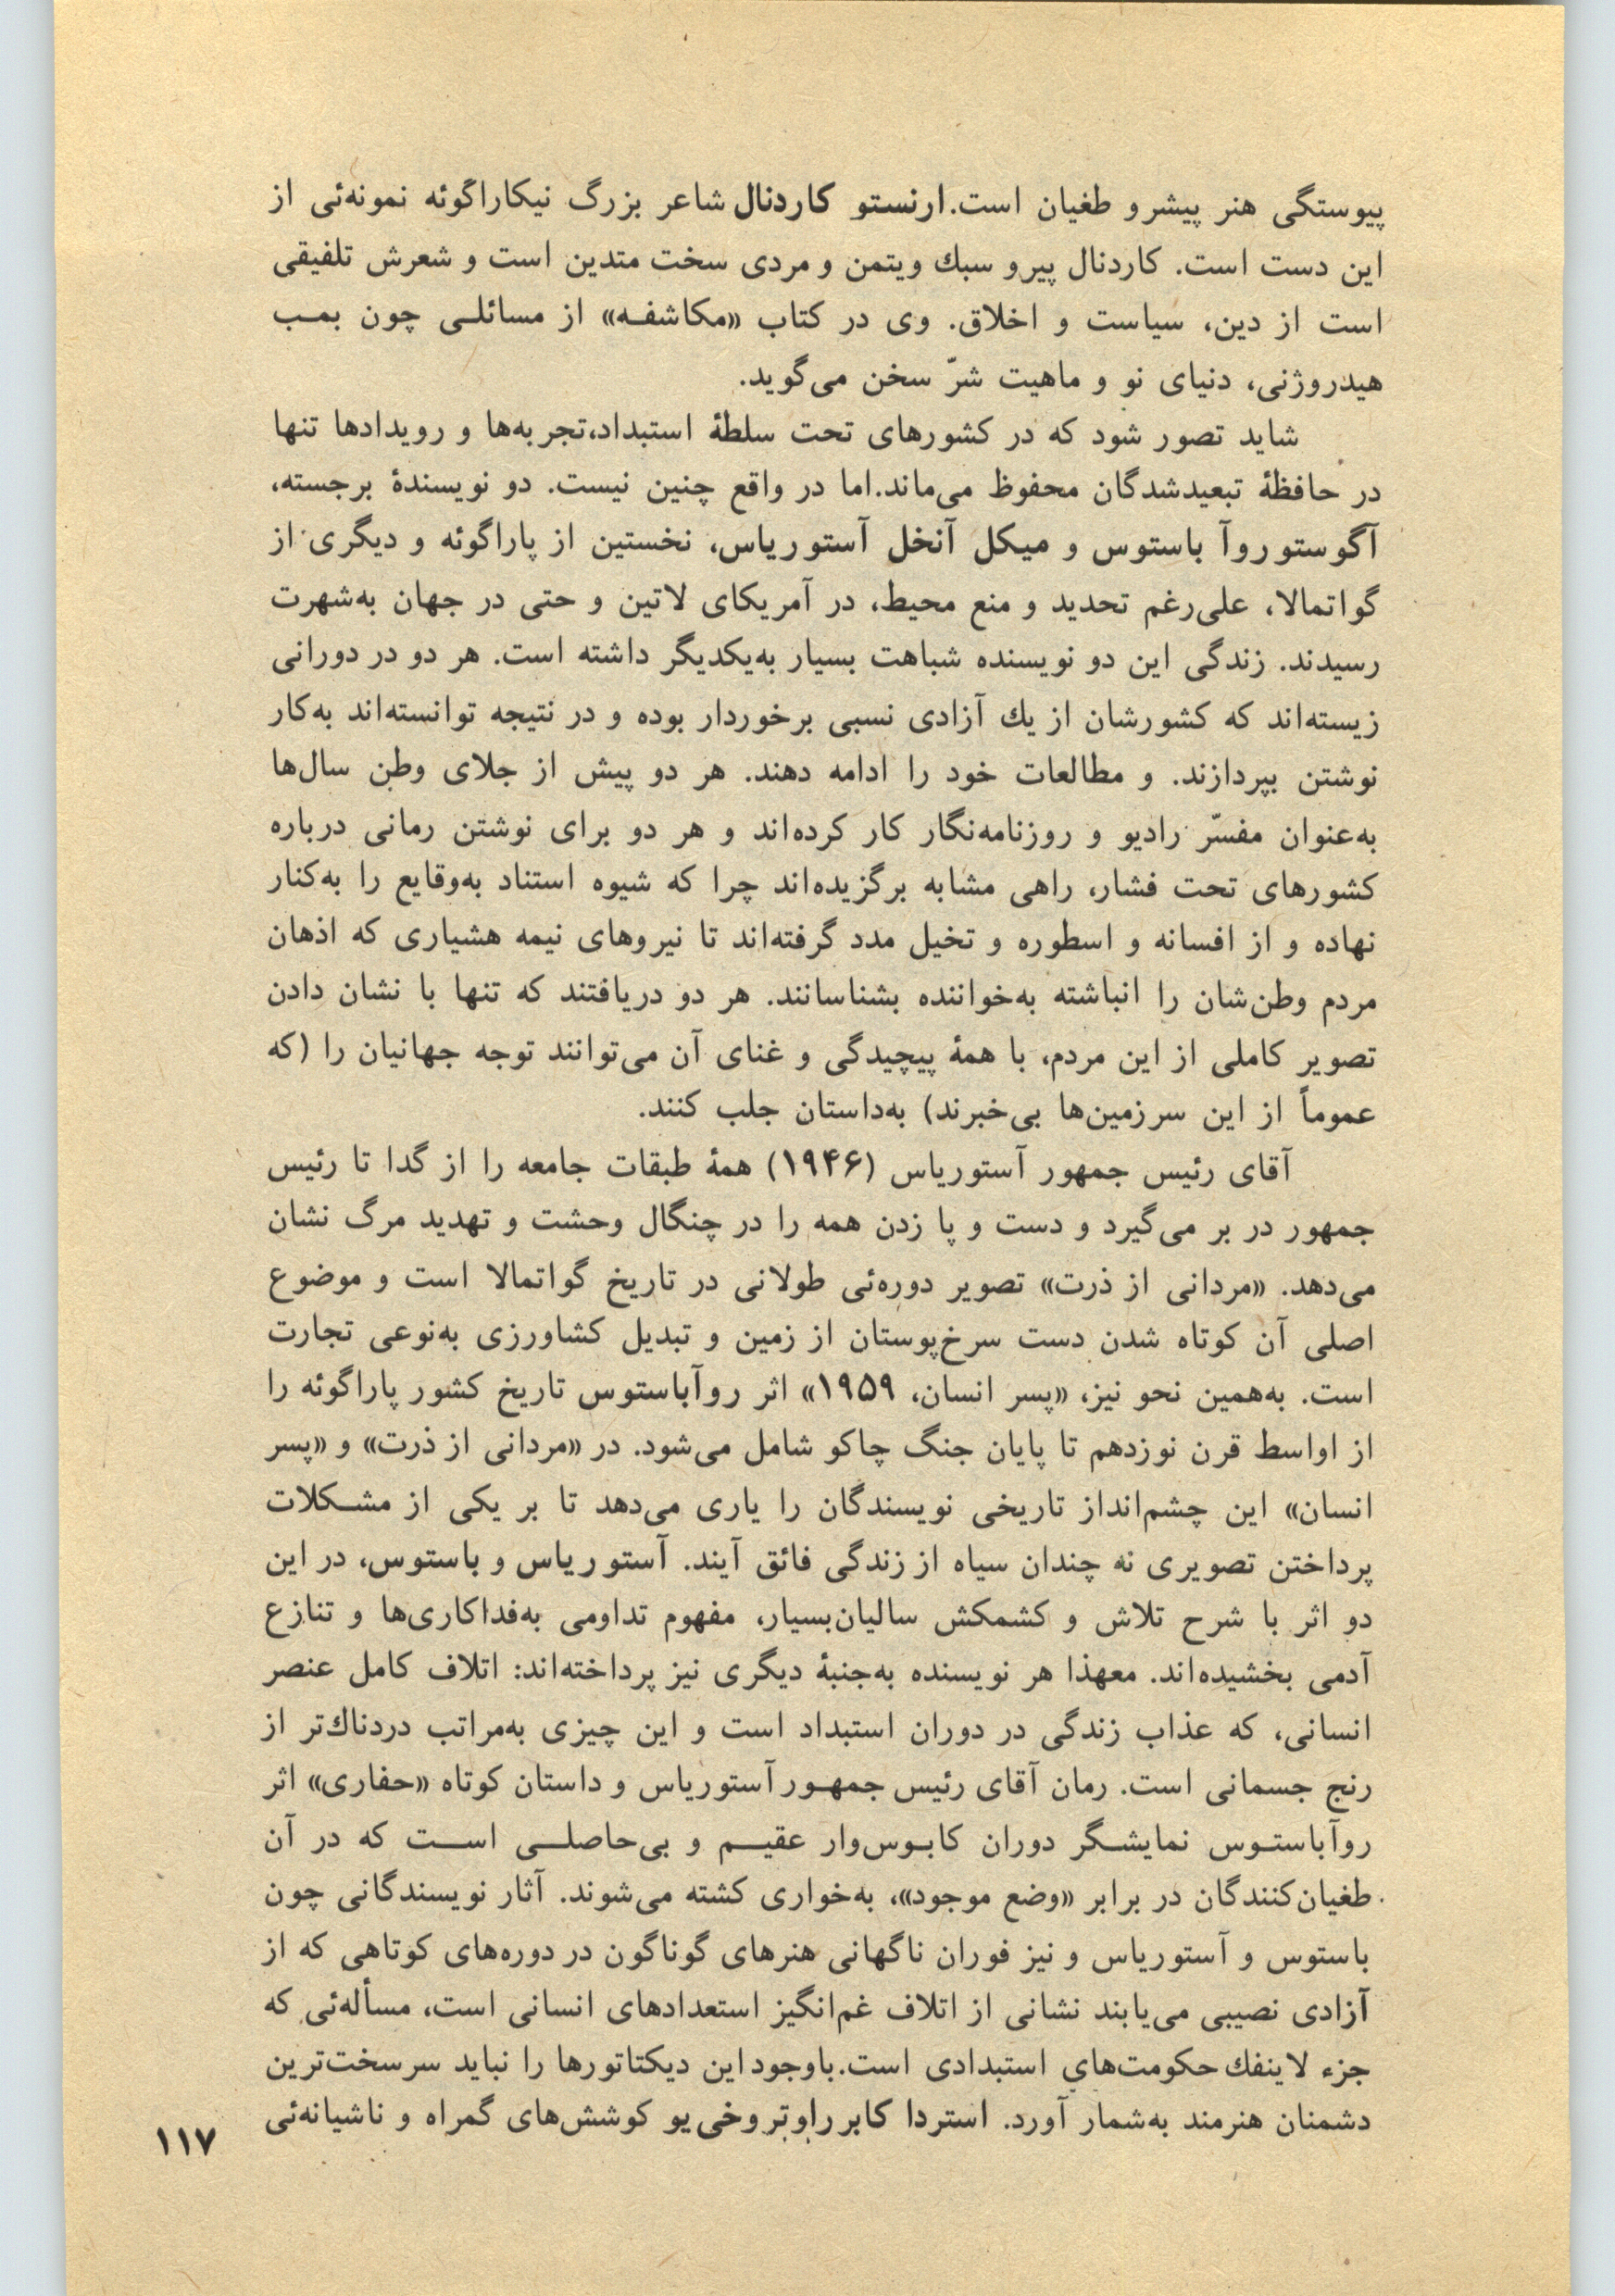 پیوستگی هنر پیشرو طغیان است. ارنستو کاردنال شاعر بزرگ نیکاراگوئه نمونه‌ئی از
این دست است. کاردنال پیرو سبك ویتمن و مردی سخت متدین است و شعرش تلفیقی
است از دین، سیاست و اخلاق. وی در کتاب «مکاشفه» از مسائلی چون بمب
هیدروژنی، دنیای نو و ماهیت شرّ سخن می‌گوید.
شاید تصور شود که در کشورهای تحت سلطهٔ استبداد، تجربه‌ها و رویدادها تنها
در حافظهٔ تبعیدشدگان محفوظ می‌ماند. اما در واقع چنین نیست. دو نویسندهٔ برجسته،
آگوستو روآ باستوس و میکل آنخل آستوریاس، نخستین از پاراگوئه و دیگری از
گواتمالا، علی‌رغم تحدید و منع محیط، در آمریکای لاتین و حتی در جهان به‌شهرت
رسیدند. زندگی این دو نویسنده شباهت بسیار به‌یکدیگر داشته است. هر دو در دورانی
زیسته‌اند که کشورشان از یك آزادی نسبی برخوردار بوده و در نتیجه توانسته‌اند به‌کار
نوشتن بپردازند. و مطالعات خود را ادامه دهند. هر دو پیش از جلای وطن سال‌ها
به‌عنوان مفسّر رادیو و روزنامه‌نگار کار کرده‌اند و هر دو برای نوشتن رمانی درباره
کشورهای تحت فشار، راهی مشابه برگزیده‌اند چرا که شیوه استناد به‌وقایع را به‌کنار
نهاده و از افسانه و اسطوره و تخیل مدد گرفته‌اند تا نیروهای نیمه هشیاری که اذهان
مردم وطن‌شان را انباشته به‌خواننده بشناسانند. هر دو دریافتند که تنها با نشان دادن
تصویر کاملی از این مردم، با همهٔ پیچیدگی و غنای آن می‌توانند توجه جهانیان را (که
عموماً از این سرزمین‌ها بی‌خبرند) به‌داستان جلب کنند.
آقای رئیس جمهور آستوریاس (۱۹۴۶) همهٔ طبقات جامعه را از گدا تا رئیس
جمهور در بر می‌گیرد و دست و پا زدن همه را در چنگال وحشت و تهدید مرگ نشان
می‌دهد. «مردانی از ذرت» تصویر دوره‌ئی طولانی در تاریخ گواتمالا است و موضوع
اصلی آن کوتاه شدن دست سرخ‌پوستان از زمین و تبدیل کشاورزی به‌نوعی تجارت
است. به‌همین نحو نیز، «پسر انسان، ۱۹۵۹» اثر روآباستوس تاریخ کشور پاراگوئه را
از اواسط قرن نوزدهم تا پایان جنگ چاکو شامل می‌شود. در «مردانی از ذرت» و «پسر
انسان» این چشم‌انداز تاریخی نویسندگان را یاری می‌دهد تا بر یکی از مشکلات
پرداختن تصویری نه چندان سیاه از زندگی فائق آیند. آستوریاس و باستوس، در این
دو اثر با شرح تلاش و کشمکش سالیان‌بسیار، مفهوم تداومی به‌فداکاری‌ها و تنازع
آدمی بخشیده‌اند. معهذا هر نویسنده به‌جنبهٔ دیگری نیز پرداخته‌اند: اتلاف کامل عنصر
انسانی، که عذاب زندگی در دوران استبداد است و این چیزی به‌مراتب دردناك‌تر از
رنج جسمانی است. رمان آقای رئیس جمهور آستوریاس و داستان کوتاه «حفاری» اثر
روآباستوس نمایشگر دوران کابوس‌وار عقیم و بی‌حاصلی است که در آن
طغیان‌کنندگان در برابر «وضع موجود»، به‌خواری کشته می‌شوند. آثار نویسندگانی چون
باستوس و آستوریاس و نیز فوران ناگهانی هنرهای گوناگون در دوره‌های کوتاهی که از
آزادی نصیبی می‌یابند نشانی از اتلاف غم‌انگیز استعدادهای انسانی است، مسأله‌ئی که
جزء لاینفك حکومت‌های استبدادی است. باوجود این دیکتاتورها را نباید سرسخت‌ترین
دشمنان هنرمند به‌شمار آورد. استردا کابررا و تروخی‌یو کوشش‌های گمراه و ناشیانه‌ئی
۱۱۷